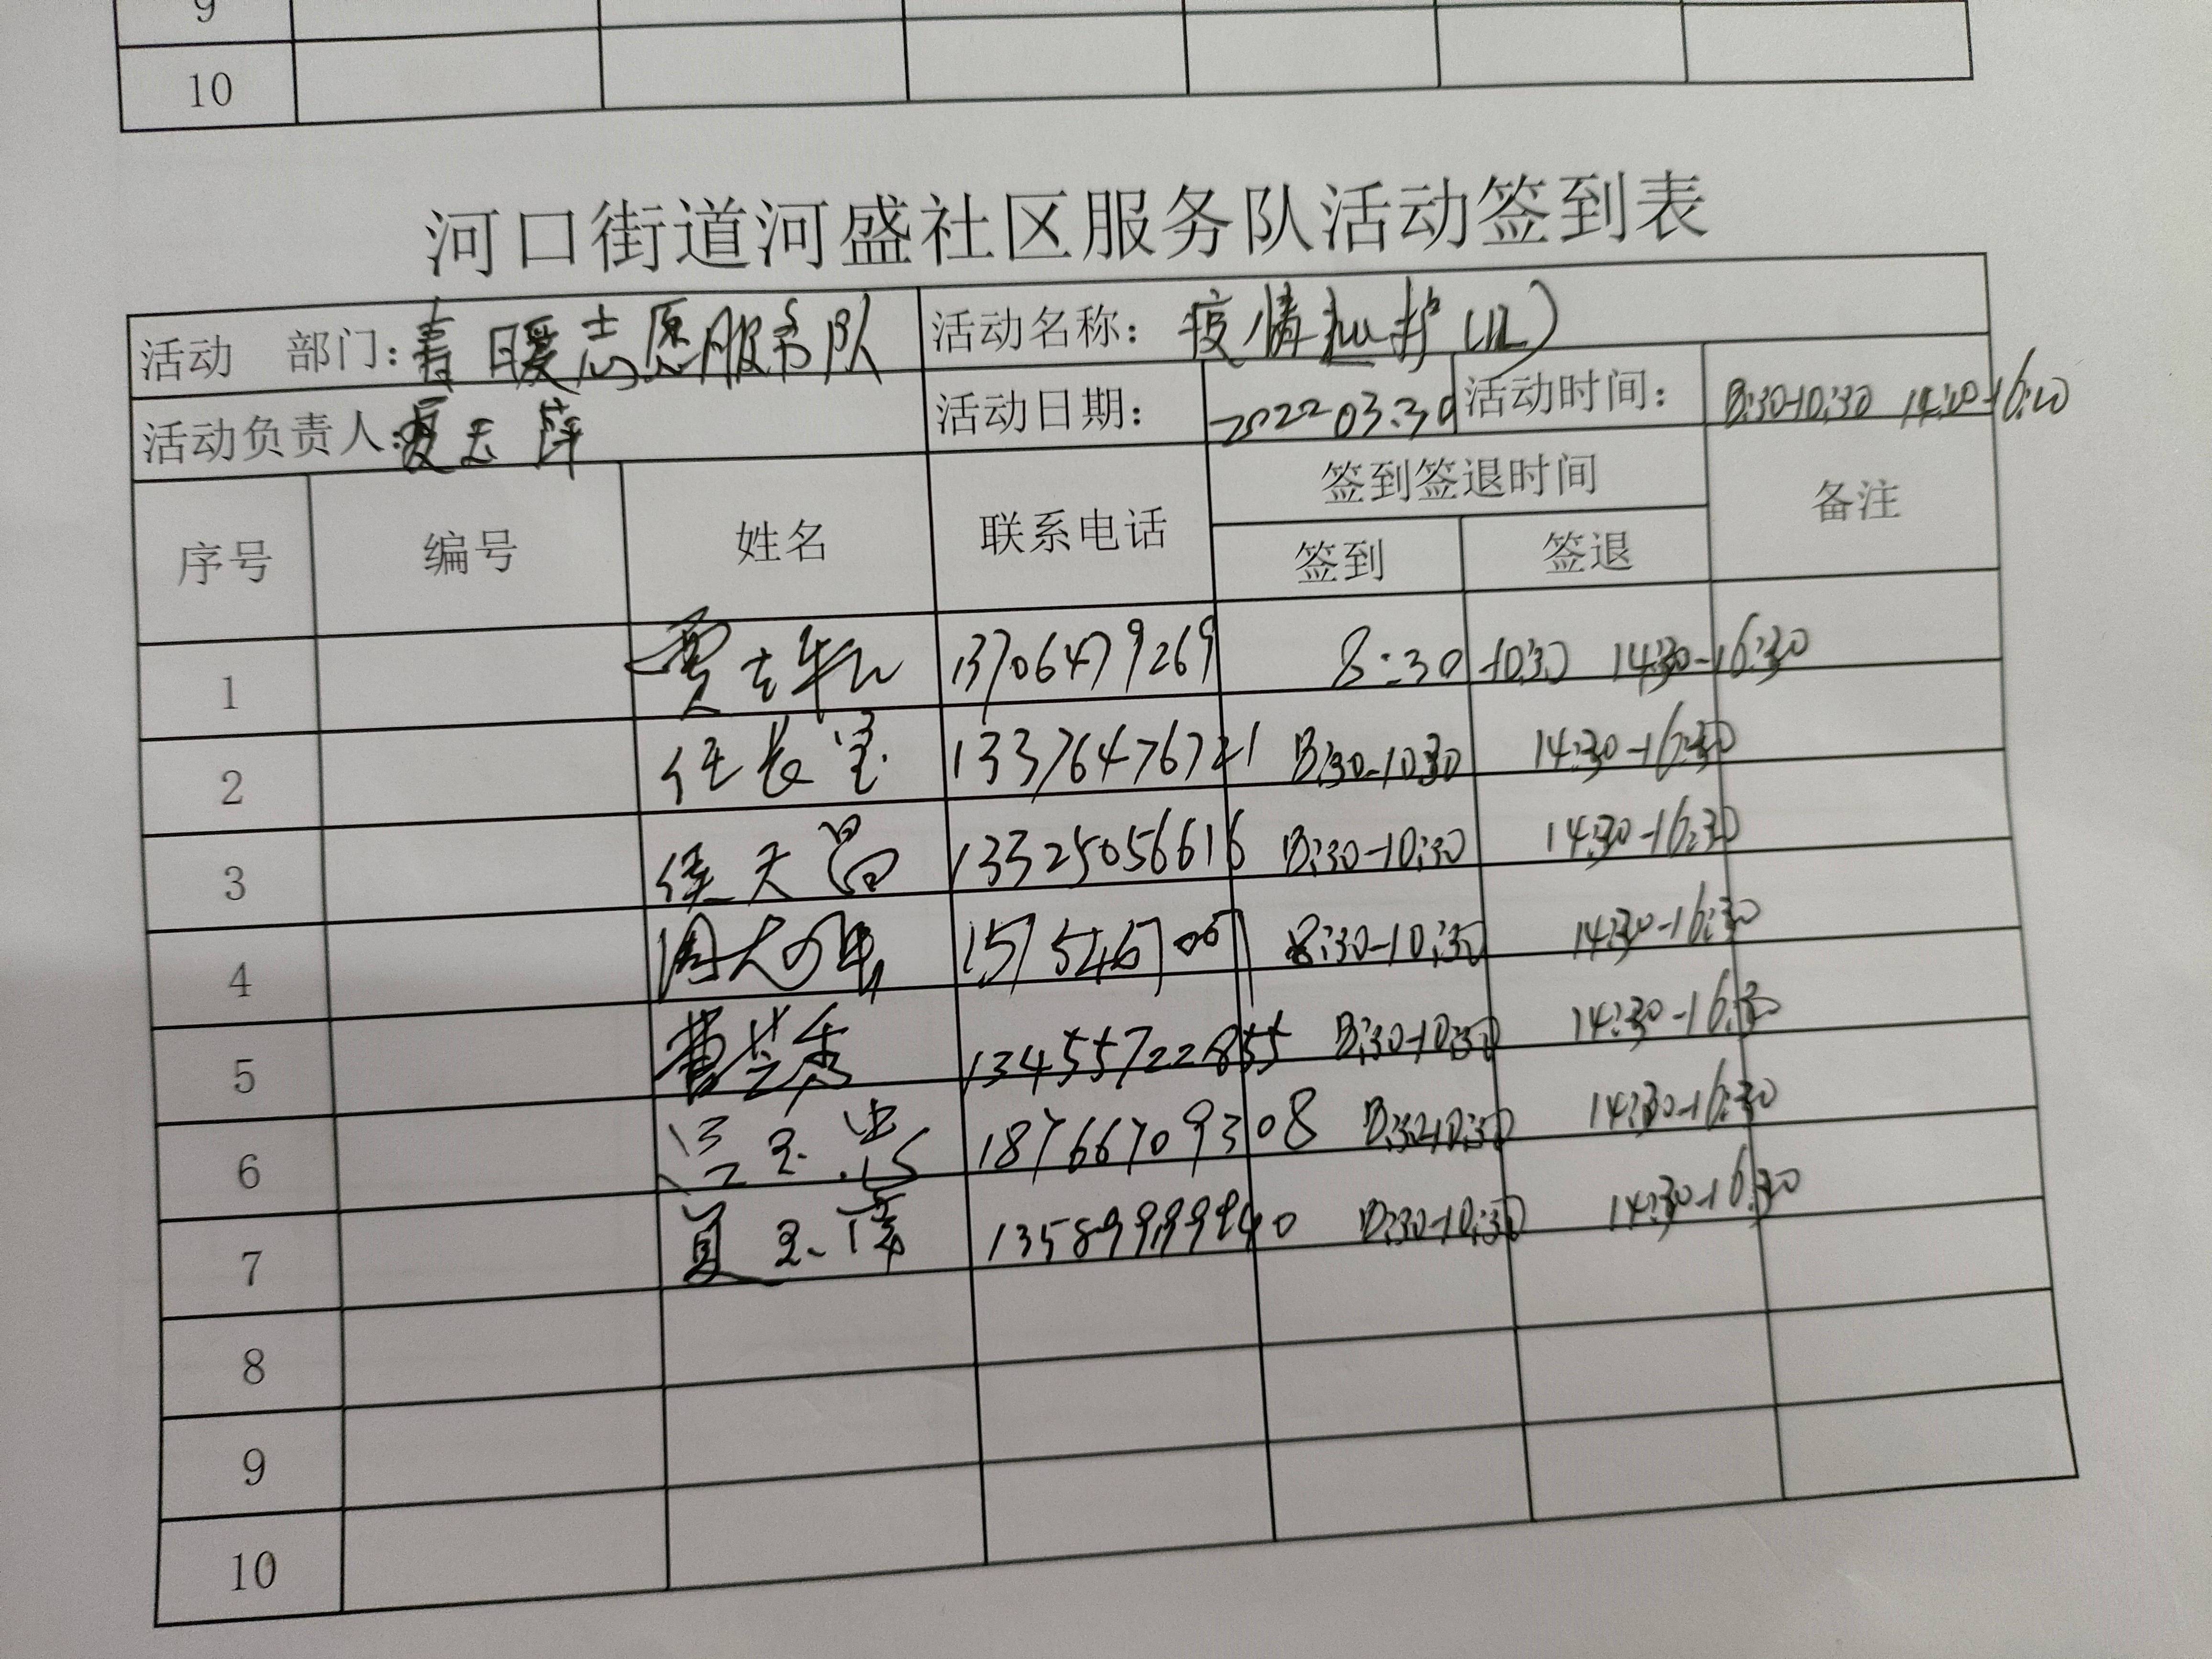 9
10
河口街道河盛社区服务队活动签到表
活动 部门：春暖志愿服务队 活动名称：疫情
活动负责人：夏玉萍 活动日期： 2022 03.30 活动时间： 8:30-10:30
序号 编号 姓名 联系电话 签到签退时间 备注
签到 签退
1 13706479269 8:30 -10:30 14:30-16:30
2 任长宝 13376476721 8:30-10:30 14:30-16:30
3 侯天昌 13325056616 8:30-10:30 14:30-16:30
4 8:30-10:30 14:30-16:30
5 曹芸秀 13455722855 8:30-10:30 14:30-16:30
6 18766709308 8:30-10:30 14:30-16:30
7 夏玉 8:30-10:30 14:30-16:30
8
9
10